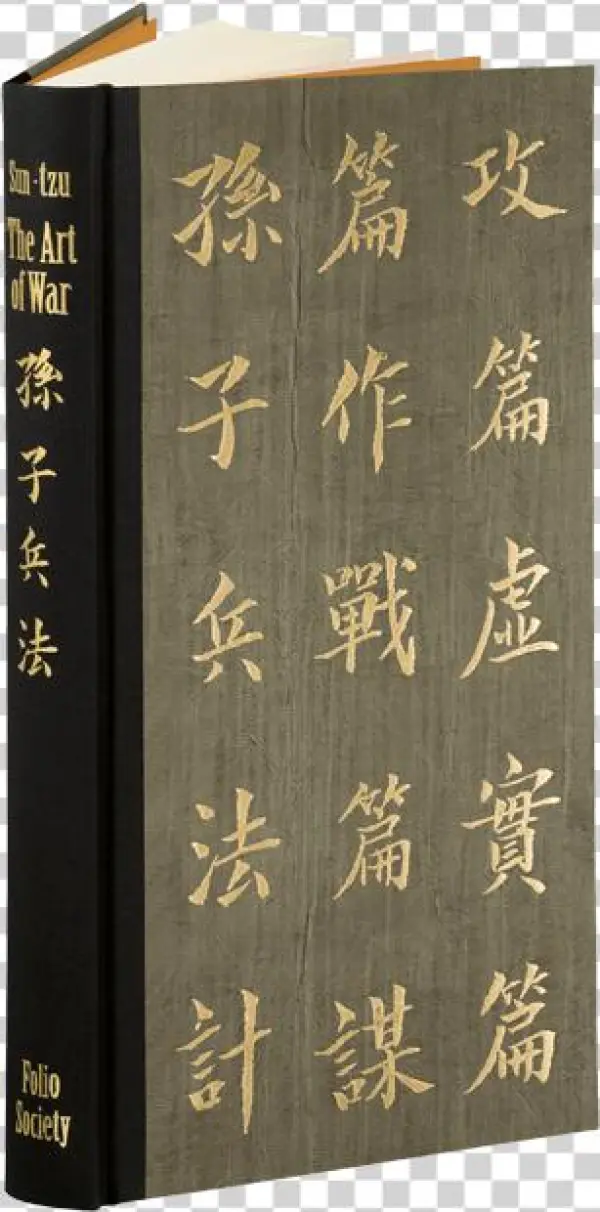 Sun-tzu
The Art
of War
孫子兵法
Folio
Society
孫子兵法計
篇作戰篇謀
攻篇虛實篇